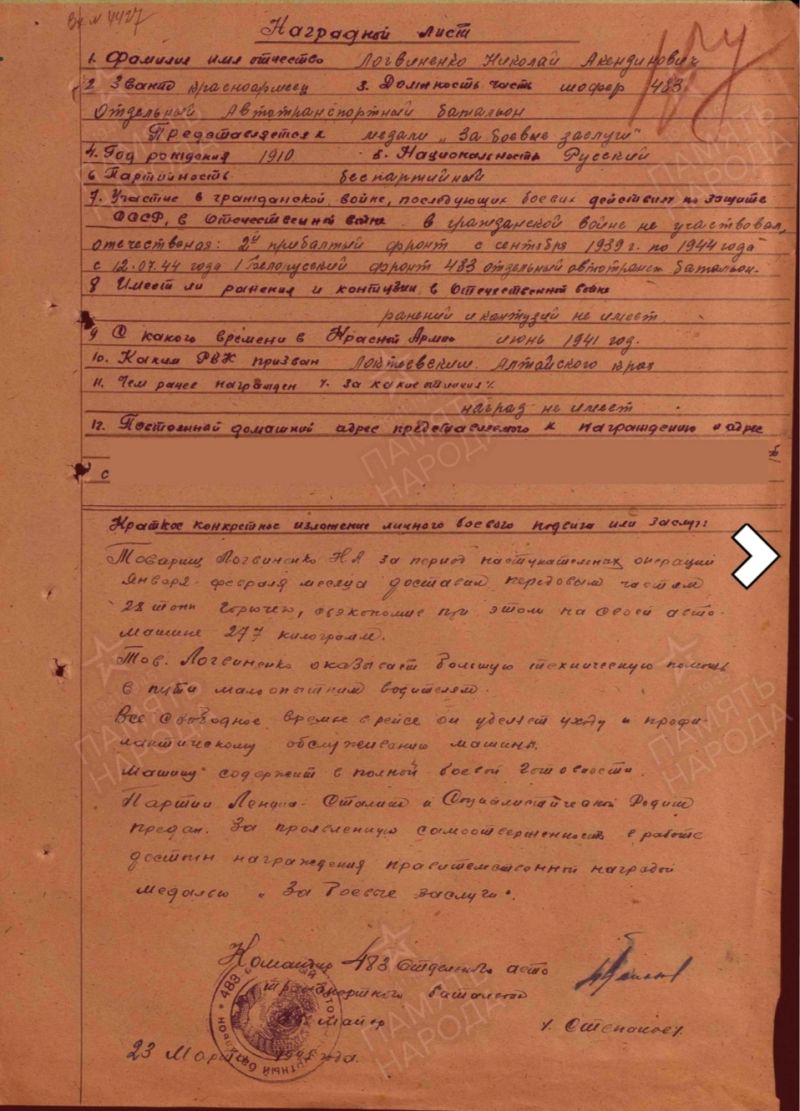 Вх. № 4427
Наградной лист
1. Фамилия имя отчество Логвиненко Николай Акендинович
2 Звание красноармеец 3. Должность часть шофер 483
Отдельный Автотранспортный батальон
Представляется к медали „За боевые заслуги"
4. Год рождения 1910 5. Национальность Русский
6 Партийность беспартийный
7. Участие в гражданской войне, последующих боевых действиях по защите
СССР, в Отечественной войне. в гражданской войне не участвовал,
отечественая: 2й прибалтый фронт с сентября 1939 г. по 1944 года
с 12.07.44 года 1 Белорусский фронт 483 отдельный автотрансп батальон.
8 Имеет ли ранения и контузии в Отечественной войне
ранений и контузий не имеет
9 С какого времени в Красной Армии июнь 1941 год.
10. Каким РВК призван Локтевским Алтайского края
11. Чем ранее награжден за какие отличия
наград не имеет
12. Постоянный домашний адрес представляемого к награждению и адрес
с
Краткое конкретное изложение личного боевого подвига или заслуг:
Товарищ Логвиненко Н А за период наступательных операций
января-февраля месяца доставил передовым частям
28 тонн горючего, сэкономив при этом на своей авто-
машине 277 килограмм.
Тов. Логвиненко оказывает большую техническую помощь
в пути малоопытным водителям.
Все свободное время в рейсе он уделяет уходу и профи-
лактическому обслуживанию машины.
Машину содержит в полной боевой готовности.
Партии Ленина-Сталина и Социалистической Родине
предан. За проявленную самоотверженность в работе
достоин награждения правительственной наградой
медалью „За боевые заслуги".
Командир 483 отдельного авто
транспортного батальона
майор /. Степанов /.
23 Марта 1945 года.
ПАМЯТЬ НАРОДА